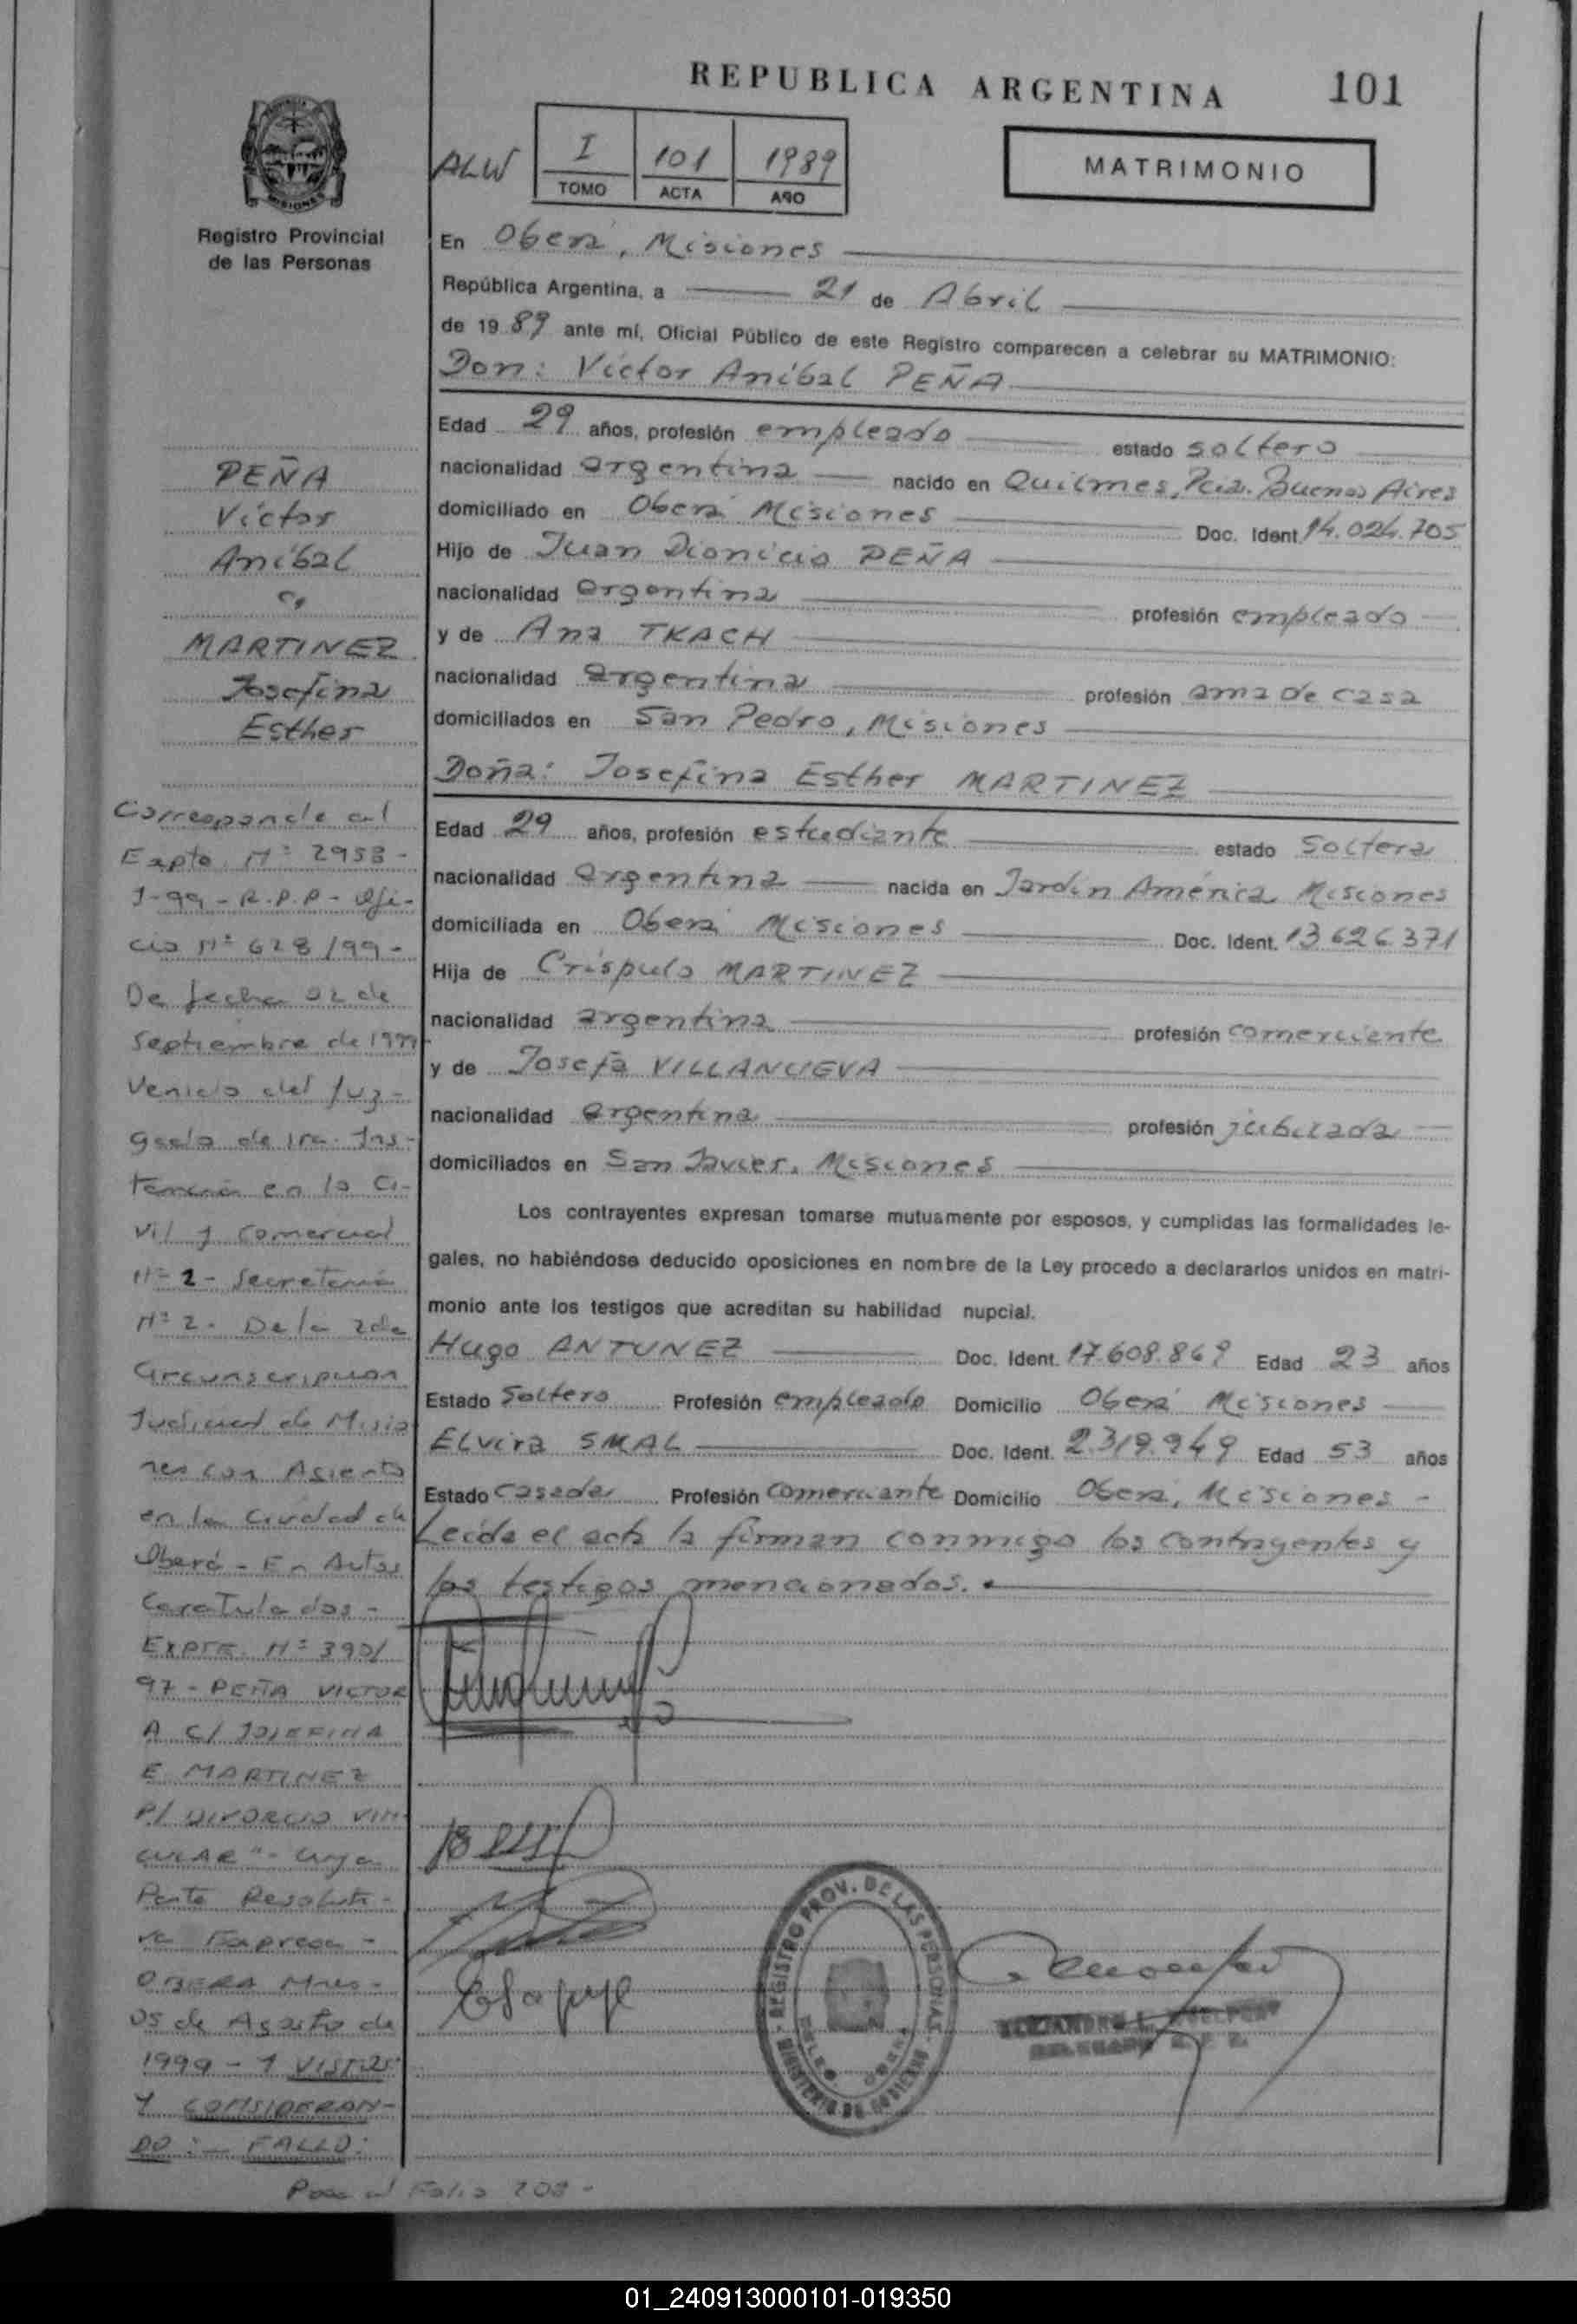 REPUBLICA ARGENTINA
101
MISIONES
Registro Provincial
de las Personas
ALW
I
TOMO
101
ACTA
1989
AÑO
MATRIMONIO
En Oberá, Misiones
República Argentina, a 21 de Abril
de 1989 ante mí, Oficial Público de este Registro comparecen a celebrar su MATRIMONIO:
Don: Víctor Aníbal PEÑA
Edad 29 años, profesión empleado estado soltero
nacionalidad argentina nacido en Quilmes, Pcia. Buenos Aires
domiciliado en Oberá Misiones Doc. Ident. 14.024.705
Hijo de Juan Dionicio PEÑA
nacionalidad argentina profesión empleado
y de Ana TKACH
nacionalidad argentina profesión ama de casa
domiciliados en San Pedro, Misiones
Doña: Josefina Esther MARTINEZ
Edad 29 años, profesión estudiante estado soltera
nacionalidad argentina nacida en Jardín América Misiones
domiciliada en Oberá Misiones Doc. Ident. 13.626.371
Hija de Críspulo MARTINEZ
nacionalidad argentina profesión comerciante
y de Josefa VILLANUEVA
nacionalidad argentina profesión jubilada
domiciliados en San Javier, Misiones
Los contrayentes expresan tomarse mutuamente por esposos, y cumplidas las formalidades le-
gales, no habiéndose deducido oposiciones en nombre de la Ley procedo a declararlos unidos en matri-
monio ante los testigos que acreditan su habilidad nupcial.
Hugo ANTUNEZ Doc. Ident. 17.608.869 Edad 23 años
Estado soltero Profesión empleado Domicilio Oberá Misiones
Elvira SMAL Doc. Ident. 2.319.949 Edad 53 años
Estado casada Profesión comerciante Domicilio Oberá, Misiones -
Leída el acta la firman conmigo los contrayentes y
los testigos mencionados.
PEÑA
Víctor
Aníbal
c/
MARTINEZ
Josefina
Esther
Corresponde al
Expte. Nº 2958-
J-99-R.P.P- Ofi-
cio Nº 628/99-
De fecha 02 de
Septiembre de 1999
Venido del Juz-
gado de 1ra. Ins-
tancia en lo Ci-
vil y Comercial
Nº 2 - Secretaria
Nº 2. De la 2da
Circunscripcion
Judicial de Misio
nes con Asiento
en la Ciudad de
Oberá - En Autos
Caratulados -
EXPTE. Nº 390/
97 - PEÑA VICTOR
A C/ JOSEFINA
E MARTINEZ
P/ DIVORCIO VIN-
CULAR" - Cuya
Parte Resoluti-
va Expresa -
OBERA Mnes -
05 de Agosto de
1999 - Y VISTOS
Y CONSIDERAN-
DO: - FALLO:
Pasa al Folio 208 -
REGISTRO PROV. DE LAS PERSONAS
01_240913000101-019350